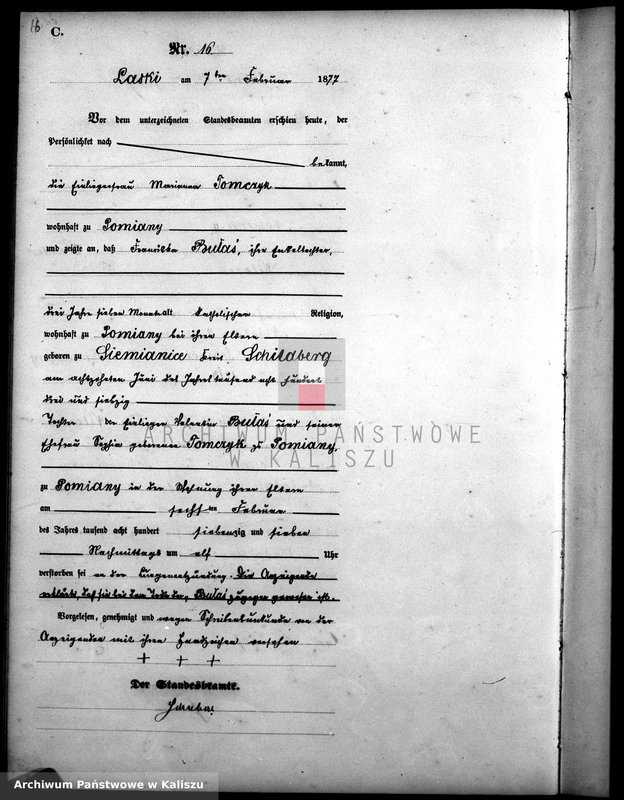 16
C.
Nr. 16
Laski am 7ten Februar 1877
Vor dem unterzeichneten Standesbeamten erschien heute, der
Persönlichkeit nach
bekannt,
die Einliegerfrau Marianna Tomczyk
wohnhaft zu Pomiany
und zeigte an, daß Franciska Bułaś, ihre Enkeltochter,
drei Jahre sieben Monate alt katholischer Religion,
wohnhaft zu Pomiany bei ihren Eltern
geboren zu Siemianice Kreis Schildberg
am achtzehnten Juni des Jahres tausend acht hundert
drei und siebzig
Tochter der Einlieger Valentin Bułaś und seiner
Ehefrau Sophia geborene Tomczyk zu Pomiany,
zu Pomiany in der Wohnung ihrer Eltern
am sechsten Februar
des Jahres tausend acht hundert siebenzig und sieben
Nachmittags um elf Uhr
verstorben sei an der Lungenentzündung. Die Anzeigende
erklärt, daß sie bei dem Tode der Bułaś zugegen gewesen ist.
Vorgelesen, genehmigt und wegen Schreibensunkunde von der
Anzeigenden mit ihrem Handzeichen versehen
+ + +
Der Standesbeamte.
ARCHIWUM PAŃSTWOWE
W KALISZU
Archiwum Państwowe w Kaliszu